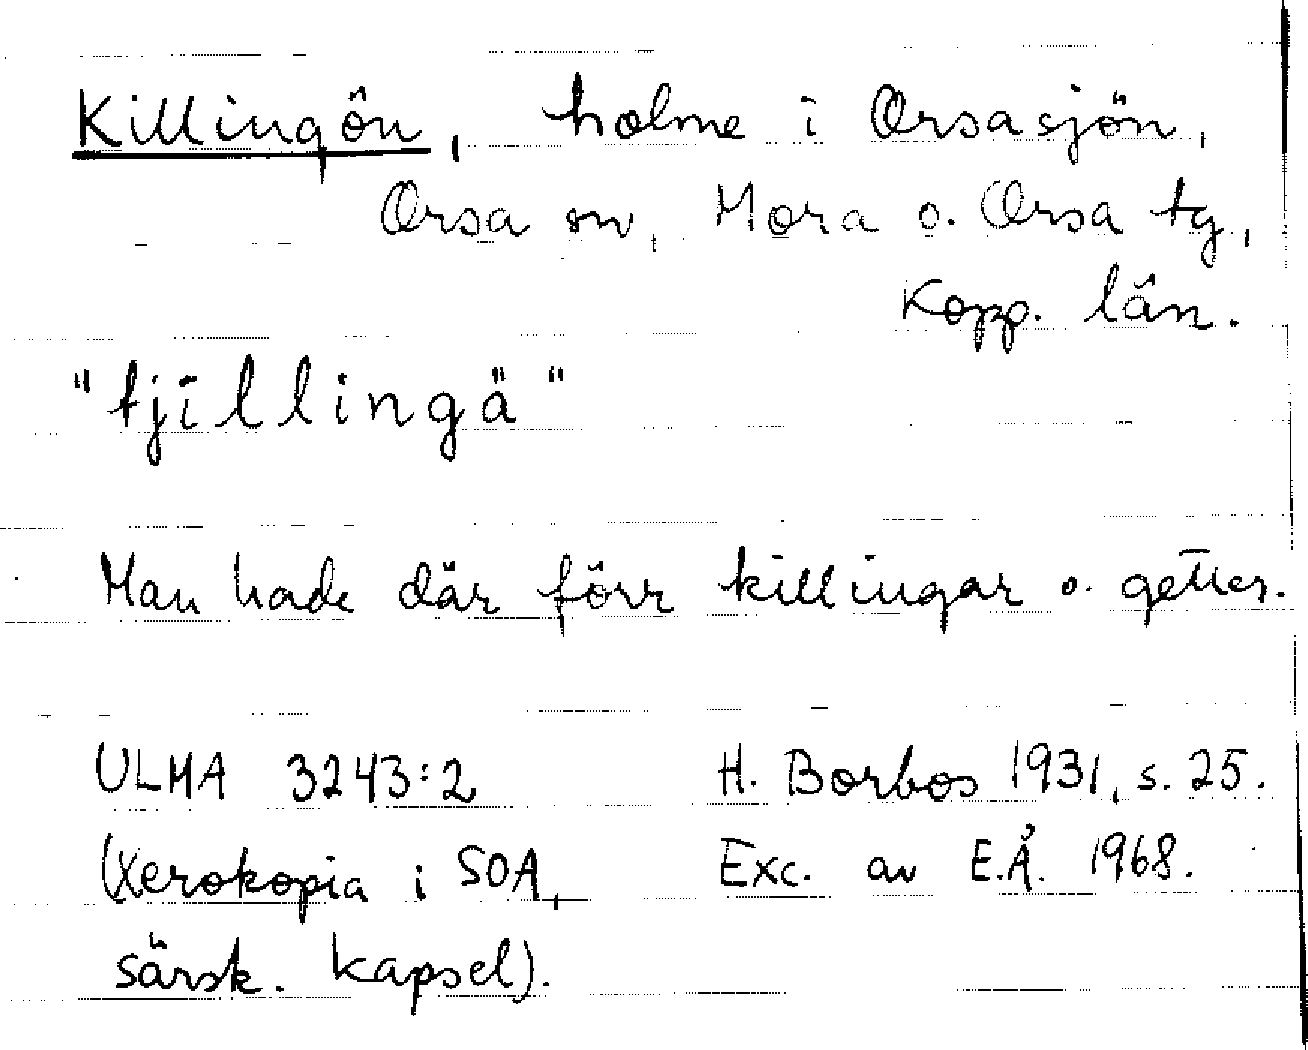 Killingön, holme i Orsasjön,
Orsa sn, Mora o. Orsa tg,
Kopp. län.
"tjillingä"
Man hade där förr killingar o. getter.
ULMA 3243:2 H. Borbos 1931, s. 25.
(Xerokopia i SOA, Exc. av E.Å. 1968.
särsk. kapsel).